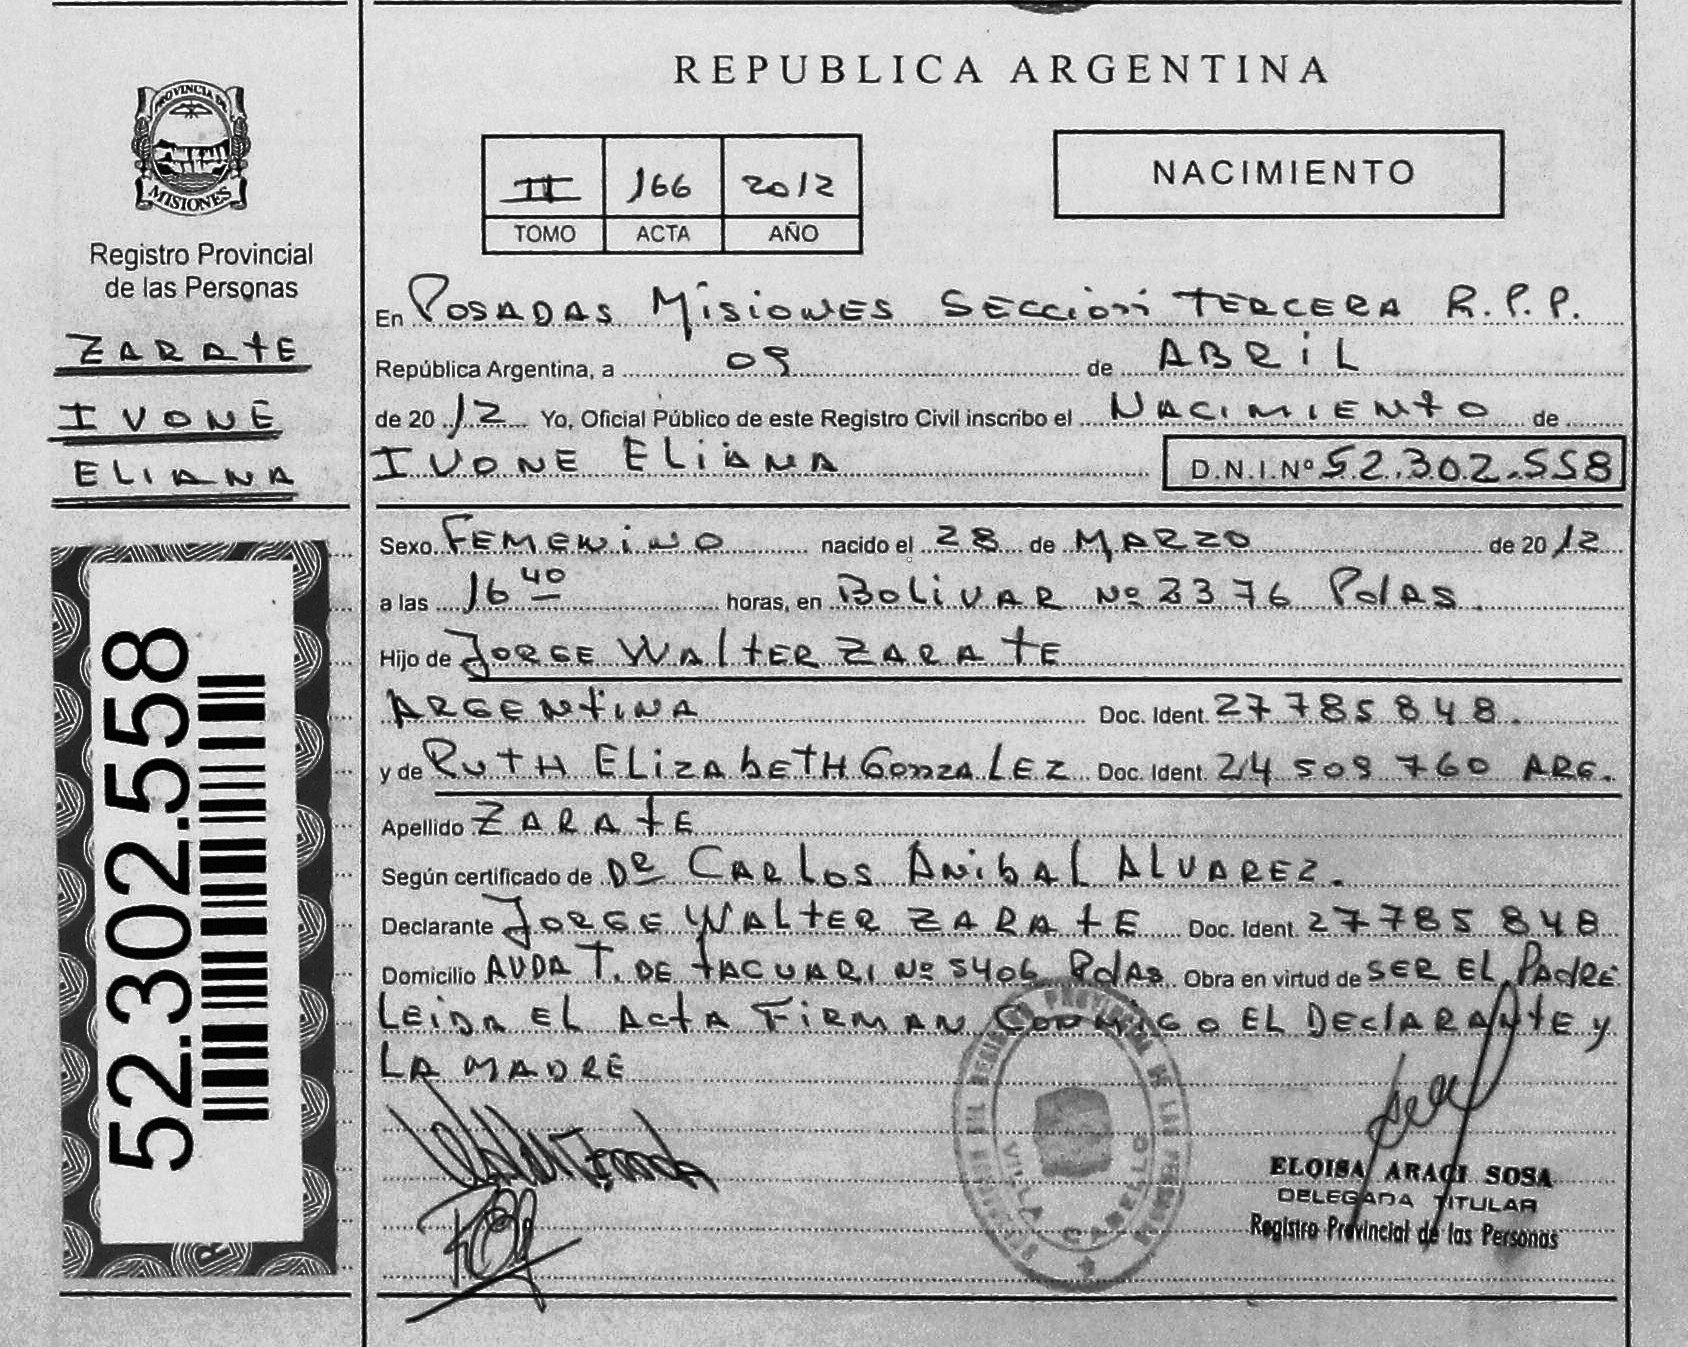 PROVINCIA DE
MISIONES
Registro Provincial
de las Personas
ZARATE
IVONE
ELIANA
52.302.558
REPUBLICA ARGENTINA
II 166 2012
TOMO ACTA AÑO
NACIMIENTO
En POSADAS MISIONES SECCION TERCERA R.P.P.
República Argentina, a 09 de ABRIL
de 2012 Yo, Oficial Público de este Registro Civil inscribo el NACIMIENTO de
IVONE ELIANA D.N.I.Nº 52.302.558
Sexo FEMENINO nacido el 28 de MARZO de 2012
a las 16 40 horas, en BOLIVAR Nº 2376 PdAS.
Hijo de JORGE WALTER ZARATE
ARGENTINA Doc. Ident. 27785848.
y de RUTH ELIZABETH GONZALEZ Doc. Ident. 24509760 ARG.
Apellido ZARATE
Según certificado de DR CARLOS ANIBAL ALVAREZ.
Declarante JORGE WALTER ZARATE Doc. Ident. 27785848
Domicilio AVDA T. DE TACUARI Nº 5406 PdAS Obra en virtud de SER EL PADRE
LEIDA EL ACTA FIRMAN CONMIGO EL DECLARANTE y
LA MADRE
VILLA CABELLO
ELOISA ARACI SOSA
DELEGADA TITULAR
Registro Provincial de las Personas